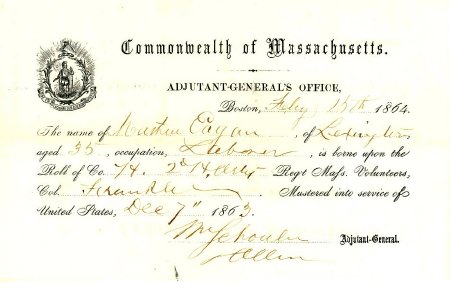 Commonwealth of Massachusetts.
ADJUTANT-GENERAL'S OFFICE,
Boston, July 15th 1864.
The name of Martin Eagan, of Lexington
aged 35, occupation, Laborer is borne upon the
Roll of Co. H. 2d H. Arty Reg't Mass. Volunteers,
Col. Frankle Mustered into service of
United States, Dec 7" 1863.
Wm Schouler Adjutant-General.